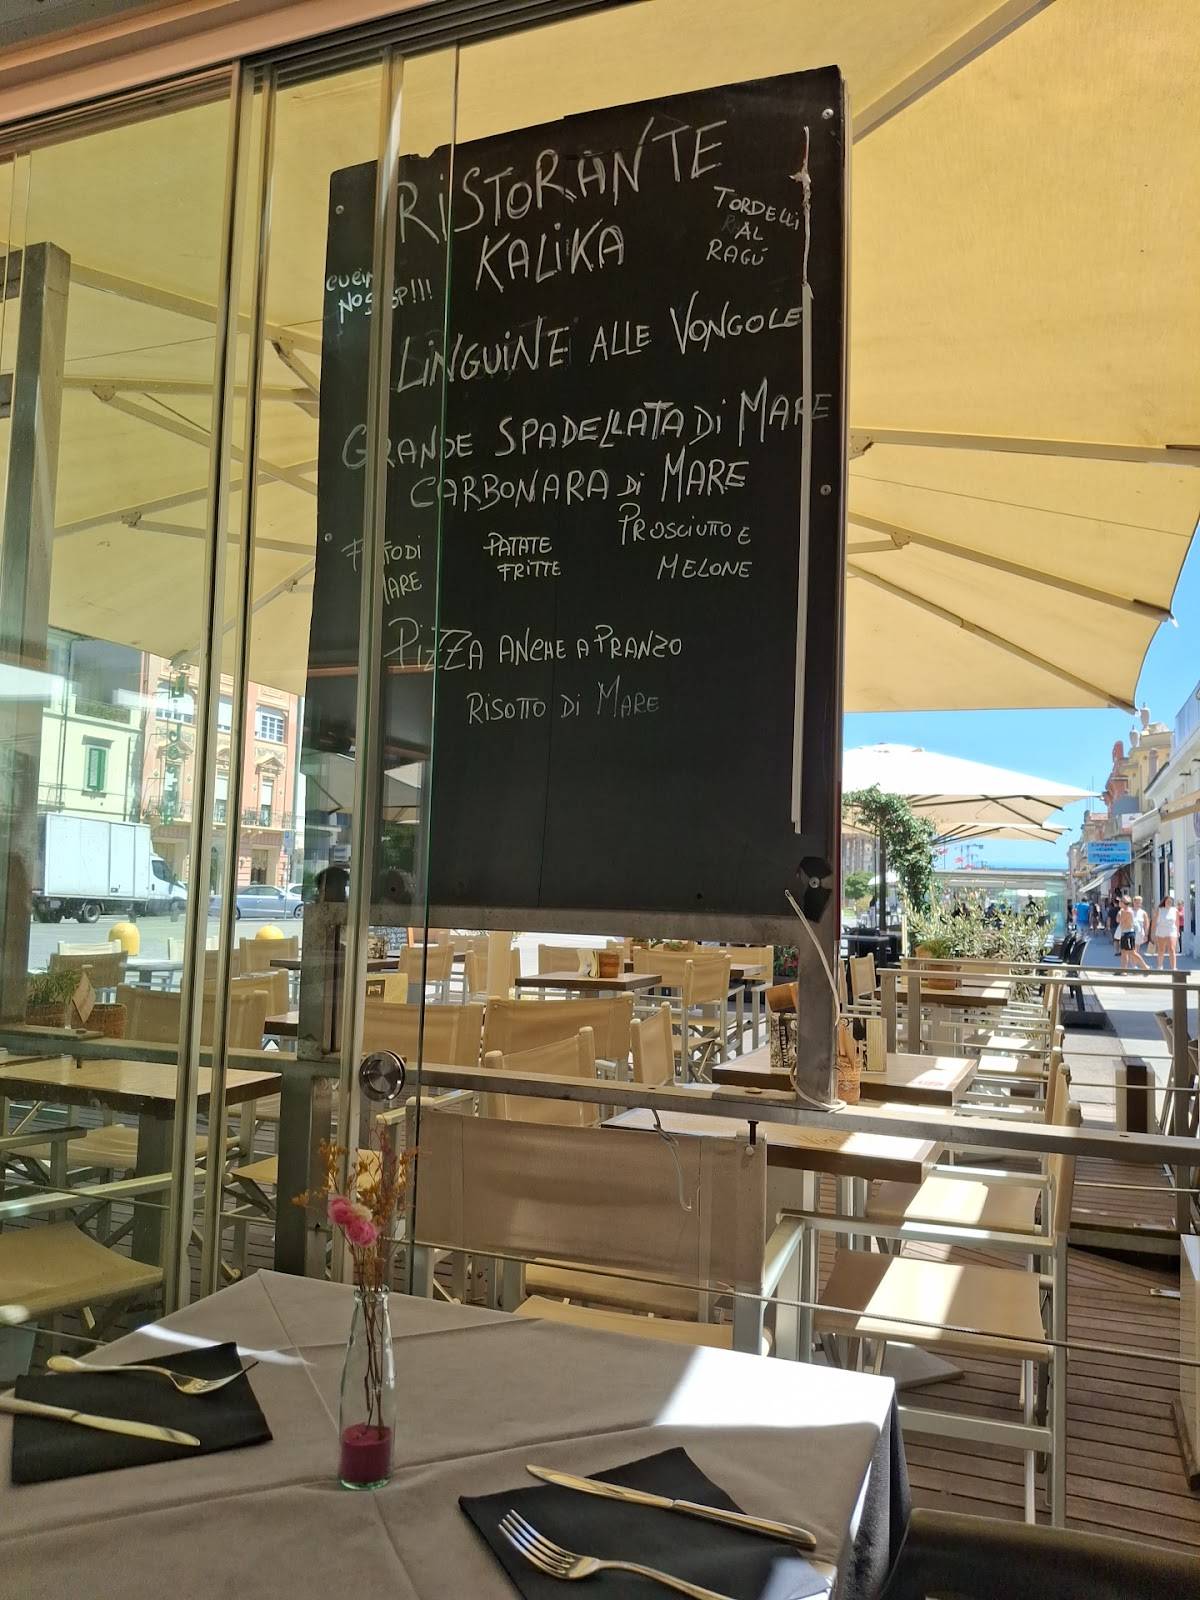 RISTORANTE
KALIKA
TORDELLI
AL
RAGÚ
NO STOP!!!
LINGUINE ALLE VONGOLE
GRANDE SPADELLATA DI MARE
CARBONARA DI MARE
FRITTO DI
MARE
PATATE
FRITTE
PROSCIUTTO E
MELONE
PIZZA ANCHE A PRANZO
RISOTTO DI MARE